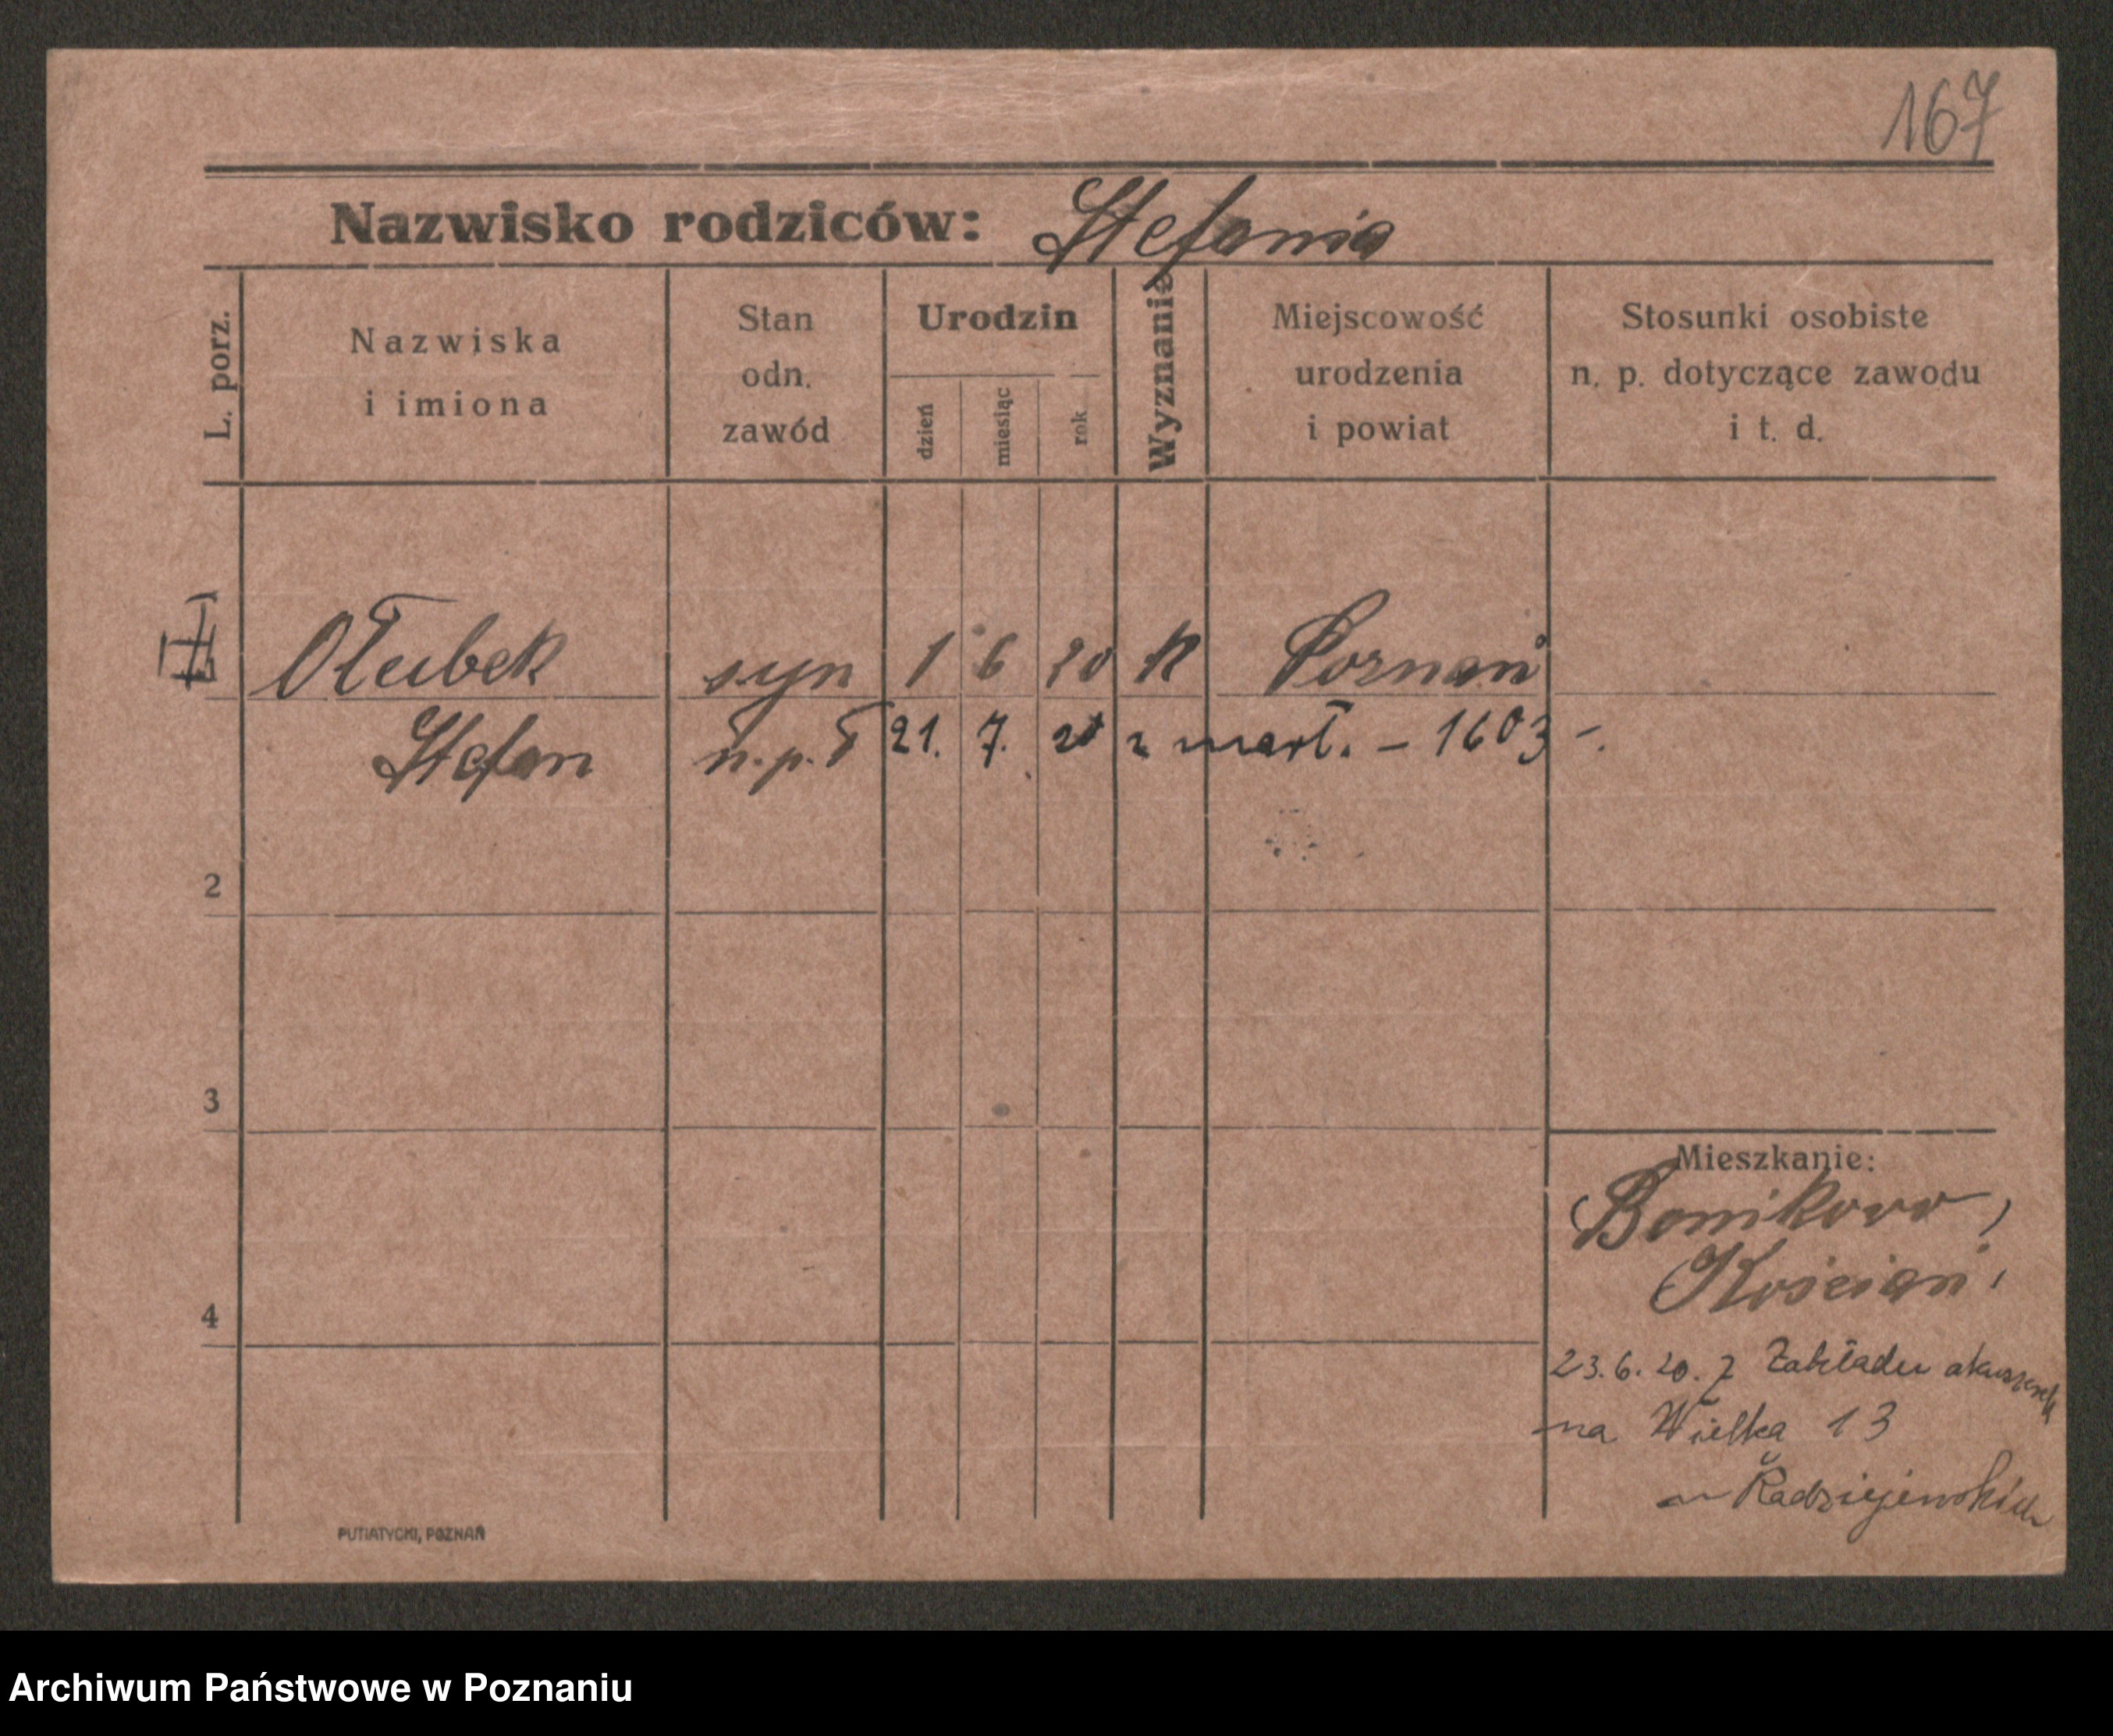 167
Nazwisko rodziców: Stefania
L. porz.
Nazwiska
i imiona
Stan
odn.
zawód
Urodzin
dzień
miesiąc
rok
Wyznanie
Miejscowość
urodzenia
i powiat
Stosunki osobiste
n. p. dotyczące zawodu
i t. d.
Ołubek syn 1 6 20 K Poznań
Stefan n.p.ś 21. 7. 20 zmarł. – 1603 –.
2
3
4
Mieszkanie:
Bonikowo,
Kościan,
23.6.20. z Zakładu
na Wielka 13
u Radziejewskich
PUTIATYCKI, POZNAŃ
Archiwum Państwowe w Poznaniu